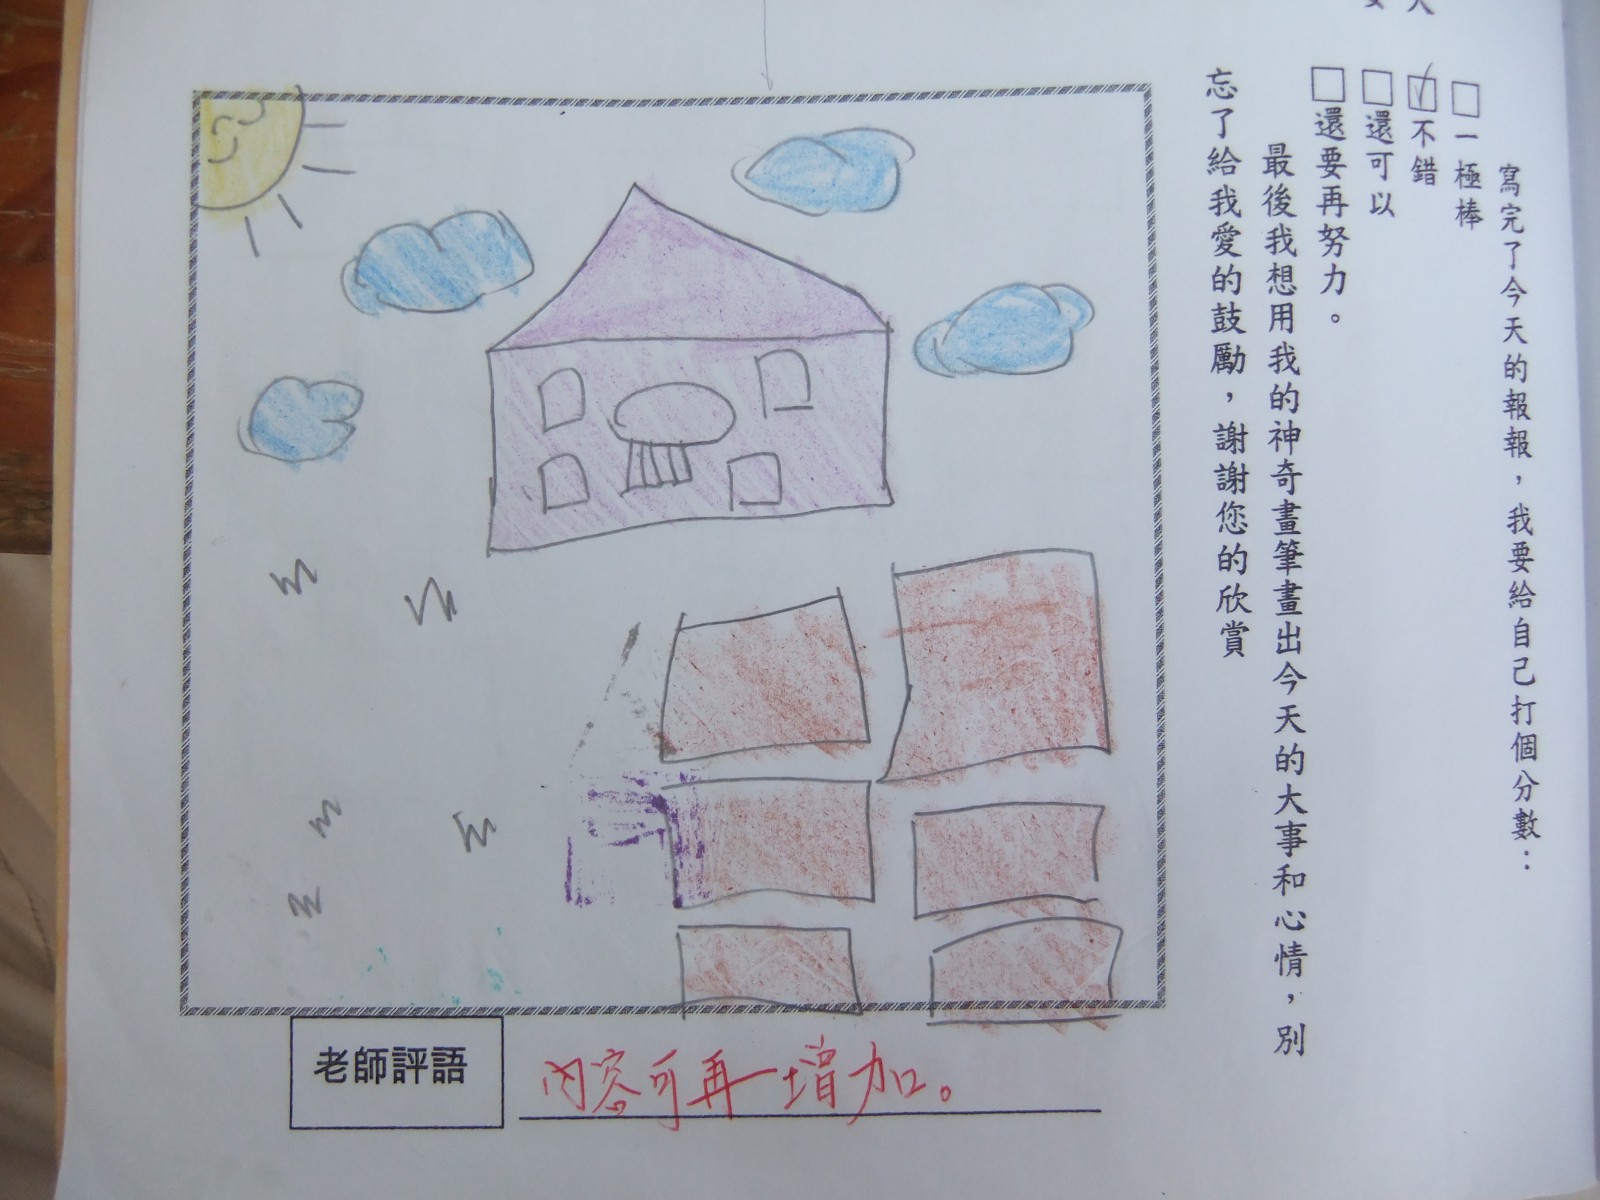 寫完了今天的報報，我要給自己打個分數：
□一極棒
☑不錯
□還可以
□還要再努力。
最後我想用我的神奇畫筆畫出今天的大事和心情，別
忘了給我愛的鼓勵，謝謝您的欣賞
老師評語
內容可再增加。